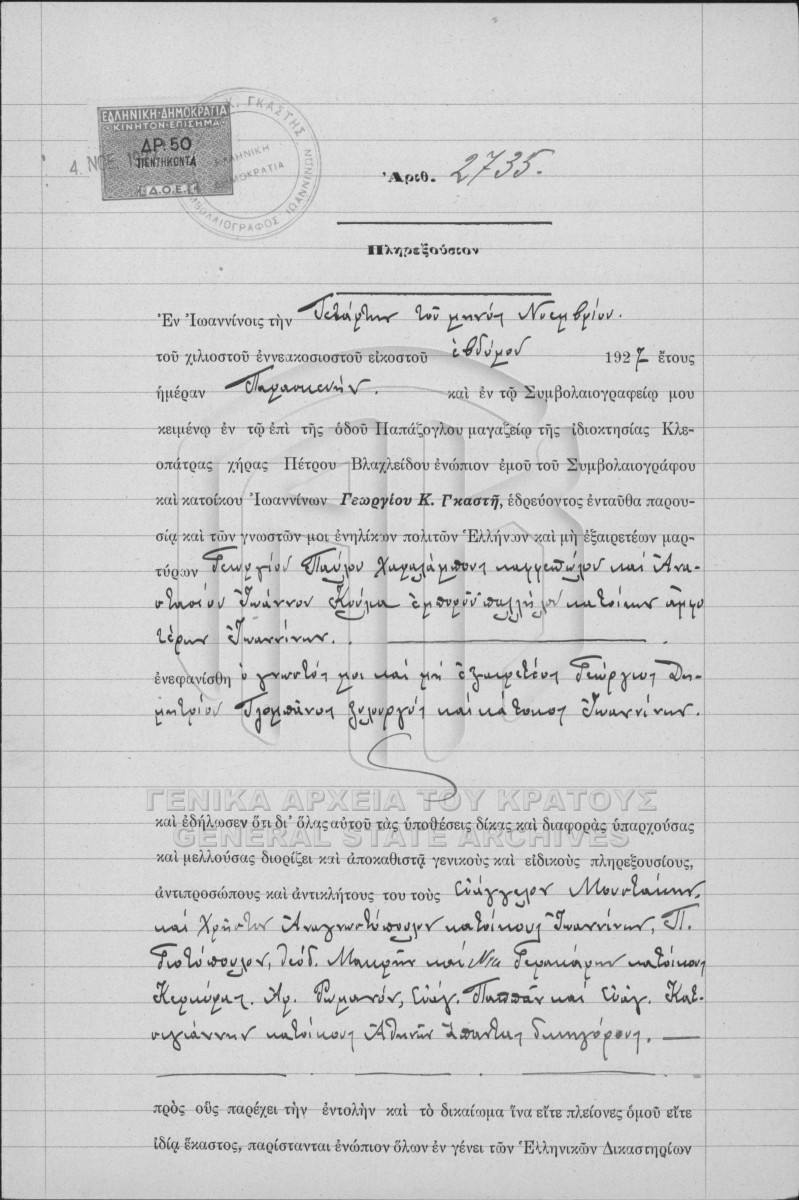 ΕΛΛΗΝΙΚΗ·ΔΗΜΟΚΡΑΤΙΑ
ΚΙΝΗΤΟΝ·ΕΠΙΣΗΜΑ
ΔΡ. 50
ΠΕΝΤΗΚΟΝΤΑ
Δ.Ο.Ε.
4. ΝΟΕ
Κ. ΓΚΑΣΤΗΣ
ΣΥΜΒΟΛΑΙΟΓΡΑΦΟΣ ΙΩΑΝΝΙΝΩΝ
ΕΛΛΗΝΙΚΗ
ΔΗΜΟΚΡΑΤΙΑ
Ἀριθ. 2735.
Πληρεξούσιον
Ἐν Ἰωαννίνοις τὴν Τετάρτην τοῦ μηνός Νοεμβρίου.
τοῦ χιλιοστοῦ ἐννεακοσιοστοῦ εἰκοστοῦ ἑβδόμου 1927 ἔτους
ἡμέραν Παρασκευήν. καὶ ἐν τῷ Συμβολαιογραφείῳ μου
κειμένῳ ἐν τῷ ἐπὶ τῆς ὁδοῦ Παπάζογλου μαγαζείῳ τῆς ἰδιοκτησίας Κλε-
οπάτρας χήρας Πέτρου Βλαχλείδου ἐνώπιον ἐμοῦ τοῦ Συμβολαιογράφου
καὶ κατοίκου Ἰωαννίνων Γεωργίου Κ. Γκαστῆ, ἑδρεύοντος ἐνταῦθα παρου-
σίᾳ καὶ τῶν γνωστῶν μοι ἐνηλίκων πολιτῶν Ἑλλήνων καὶ μὴ ἐξαιρετέων μαρ-
τύρων Γεωργίου Παύλου Χαραλάμπους καφφεπώλου καί Ἀνα-
στασίου Ἰωάννου Κούλα ἐμποροϋπαλλήλου κατοίκων ἀμφο
τέρων Ἰωαννίνων.
ἐνεφανίσθη ὁ γνωστός μοι καί μή ἐξαιρετέος Γεώργιος Δη-
μητρίου ξυλουργός καί κάτοικος Ἰωαννίνων.
ΓΕΝΙΚΑ ΑΡΧΕΙΑ ΤΟΥ ΚΡΑΤΟΥΣ
GENERAL STATE ARCHIVES
καὶ ἐδήλωσεν ὅτι δι' ὅλας αὐτοῦ τὰς ὑποθέσεις δίκας καὶ διαφορὰς ὑπαρχούσας
καὶ μελλούσας διορίζει καὶ ἀποκαθιστᾷ γενικοὺς καὶ εἰδικοὺς πληρεξουσίους,
ἀντιπροσώπους καὶ ἀντικλήτους του τοὺς Εὐάγγελον Μουστάκην,
καί Χρῆστον Ἀναγνωστόπουλον κατοίκους Ἰωαννίνων, Π.
Γιοτόπουλον, Θεόδ. Μακρῆν καί Νικ Γερακάρην κατοίκους
Κερκύρας. Ἀρ. Ρωμανόν, Εὐάγ. Παππᾶν καί Εὐάγ. Κατ-
σιγιάννην κατοίκους Ἀθηνῶν ἅπαντας δικηγόρους.
πρὸς οὓς παρέχει τὴν ἐντολὴν καὶ τὸ δικαίωμα ἵνα εἴτε πλείονες ὁμοῦ εἴτε
ἰδίᾳ ἕκαστος, παρίστανται ἐνώπιον ὅλων ἐν γένει τῶν Ἑλληνικῶν Δικαστηρίων